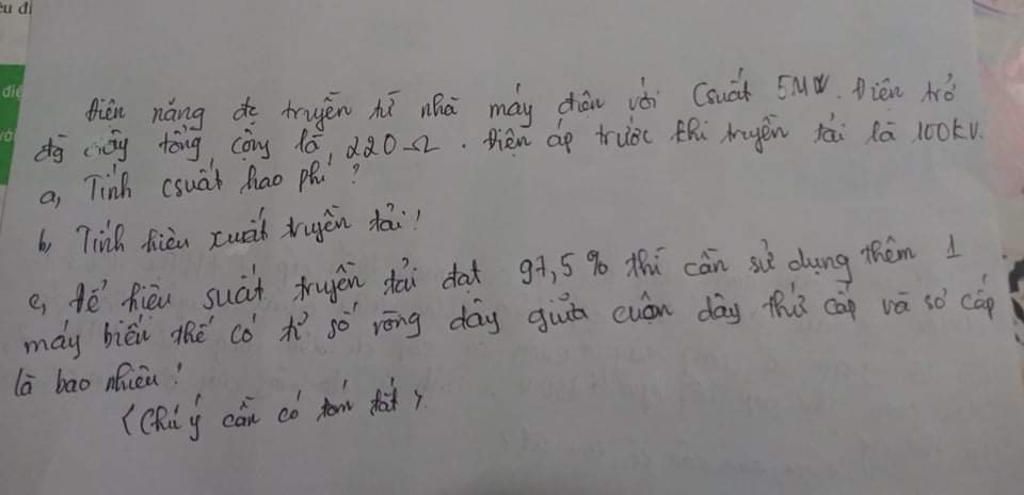 ều đi
điệ
Điện năng đc truyền từ nhà máy điện với Csuất 5MW. Điện trở
tổng cộng là 220Ω. Điện áp trước khi truyền tải là 100kV.
a, Tính csuất hao phí?
b, Tính hiệu xuất truyền tải!
c, Để hiệu suất truyền tải đạt 97,5% thì cần sử dụng thêm 1
máy biến thế có tỉ số vòng dây giữa cuộn dây thứ cấp và sơ cấp
là bao nhiêu!
(Chú ý cần có tóm tắt)